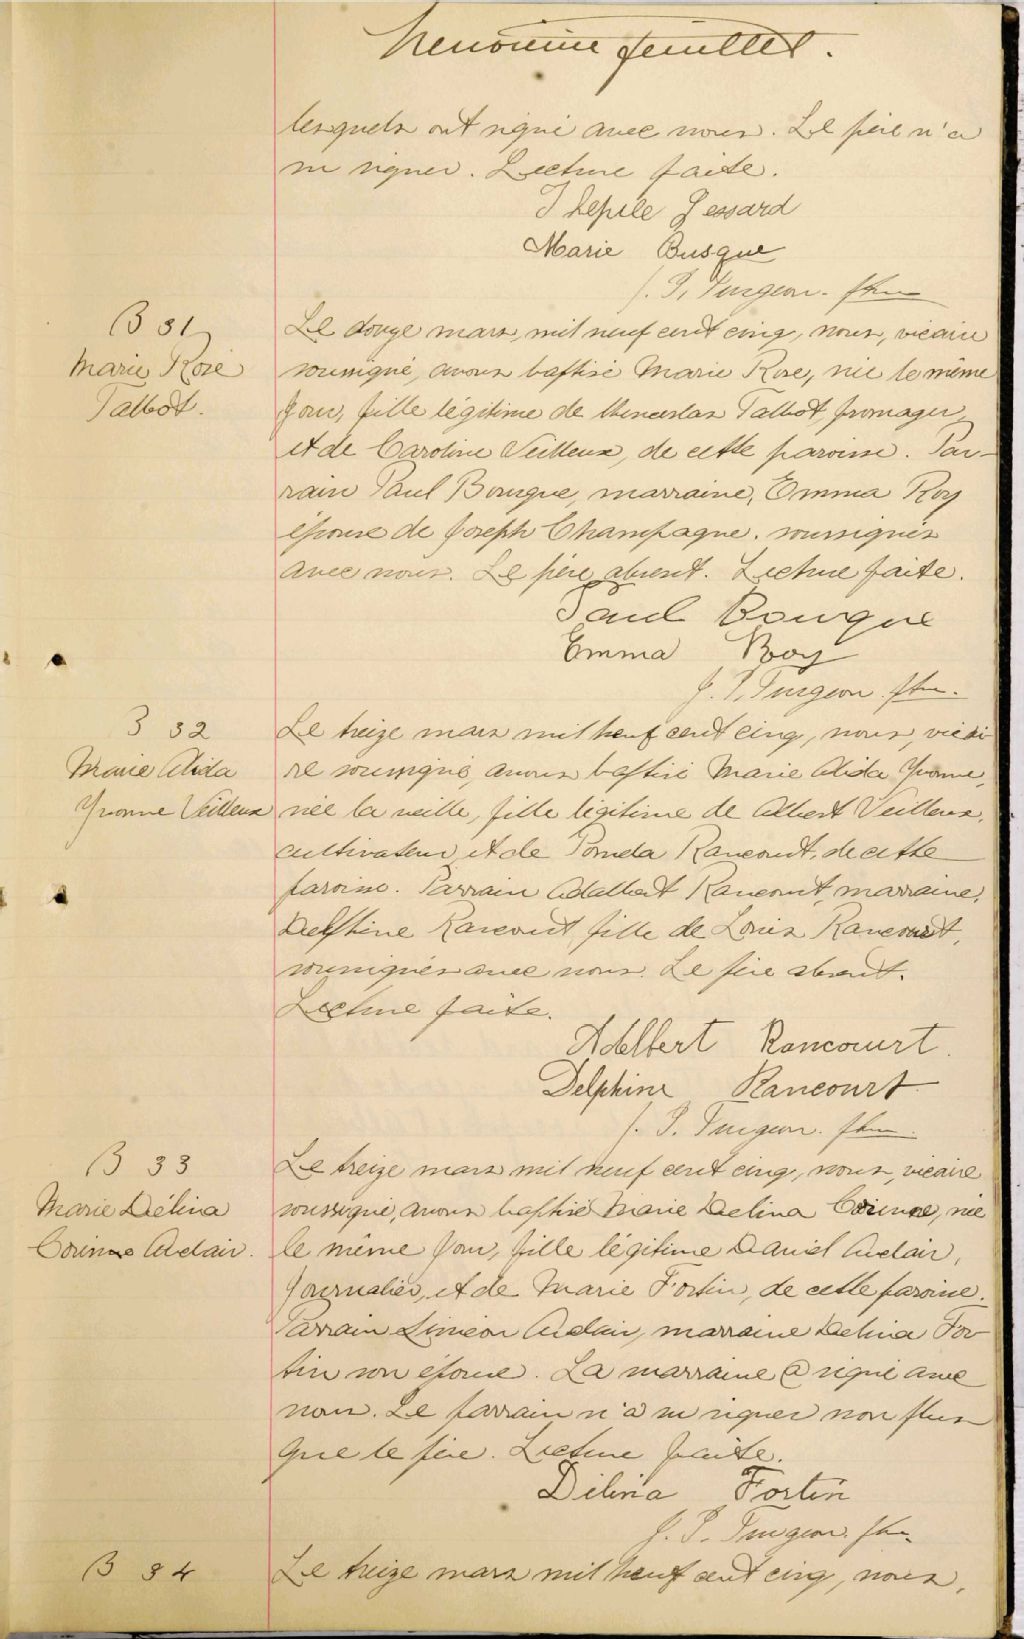 neuvième feuillet.
lesquels ont signé avec nous. Le père n'a
su signer. Lecture faite.
Thephile Lessard
Marie Busque
J. P. Turgeon. ptre
B 31
Marie Rose
Talbot.
Le douze mars, mil neuf cent cinq, nous, vicaire
soussigné, avons baptisé Marie Rose, née le même
jour, fille légitime de Wenceslas Talbot, fromager,
et de Caroline Veilleux, de cette paroisse. Par-
rain Paul Bourque, marraine, Emma Roy
épouse de Joseph Champagne. soussignés
avec nous. Le père absent. Lecture faite.
Paul Bourque
Emma Roy
J. P. Turgeon ptre.
B 32
Marie Alida
Yvonne Veilleux
Le treize mars mil neuf cent cinq, nous, vicai
re soussigné, avons baptisé Marie Alida Yvonne,
née la veille, fille légitime de Albert Veilleux,
cultivateur, et de Rancourt, de cette
paroisse. Parrain Adalbert Rancourt, marraine,
Delphine Rancourt, fille de Louis Rancourt,
soussignés avec nous. Le père absent.
Lecture faite.
Adelbert Rancourt.
Delphine Rancourt
J. P. Turgeon. ptre.
B 33
Marie Délina
Corinne Auclair.
Le treize mars mil neuf cent cinq, nous, vicaire
soussigné, avons baptisé Marie Delina Corinne, née
le même jour, fille légitime Daniel Auclair,
journalier, et de Marie Fortin, de cette paroisse.
Parrain Siméon Auclair, marraine Delina For-
tin son épouse. La marraine a signé avec
nous. Le parrain n'a su signer non plus
que le père. Lecture faite.
Délina Fortin
J. P. Turgeon. ptre.
B 34
Le treize mars mil neuf cent cinq, nous,